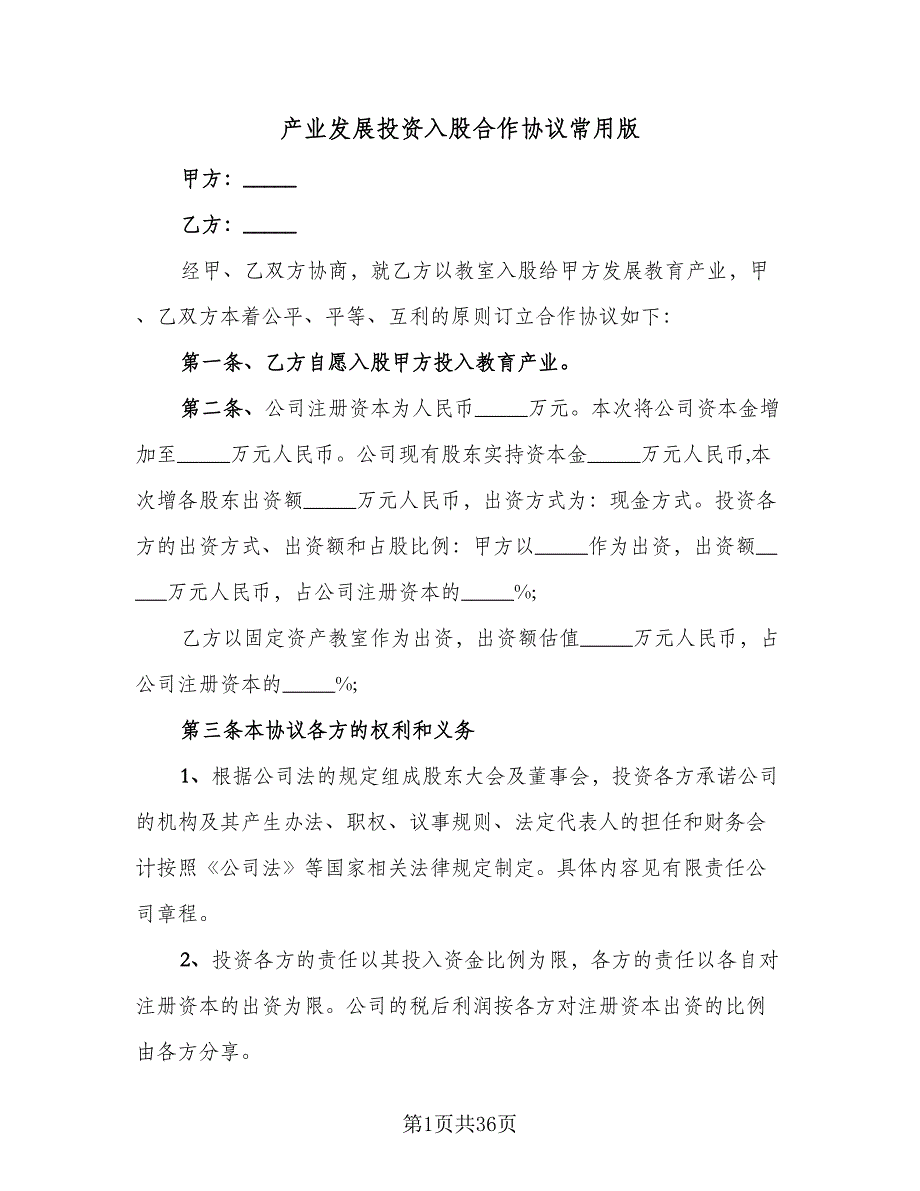 产业发展投资入股合作协议常用版
甲方：_____
乙方：_____
经甲、乙双方协商，就乙方以教室入股给甲方发展教育产业，甲
、乙双方本着公平、平等、互利的原则订立合作协议如下：
第一条、乙方自愿入股甲方投入教育产业。
第二条、公司注册资本为人民币_____万元。本次将公司资本金增
加至_____万元人民币。公司现有股东实持资本金_____万元人民币,本
次增各股东出资额_____万元人民币，出资方式为：现金方式。投资各
方的出资方式、出资额和占股比例：甲方以_____作为出资，出资额__
___万元人民币，占公司注册资本的_____%;
乙方以固定资产教室作为出资，出资额估值_____万元人民币，占
公司注册资本的_____%;
第三条本协议各方的权利和义务
1、根据公司法的规定组成股东大会及董事会，投资各方承诺公司
的机构及其产生办法、职权、议事规则、法定代表人的担任和财务会
计按照《公司法》等国家相关法律规定制定。具体内容见有限责任公
司章程。
2、投资各方的责任以其投入资金比例为限，各方的责任以各自对
注册资本的出资为限。公司的税后利润按各方对注册资本出资的比例
由各方分享。
第1页共36页